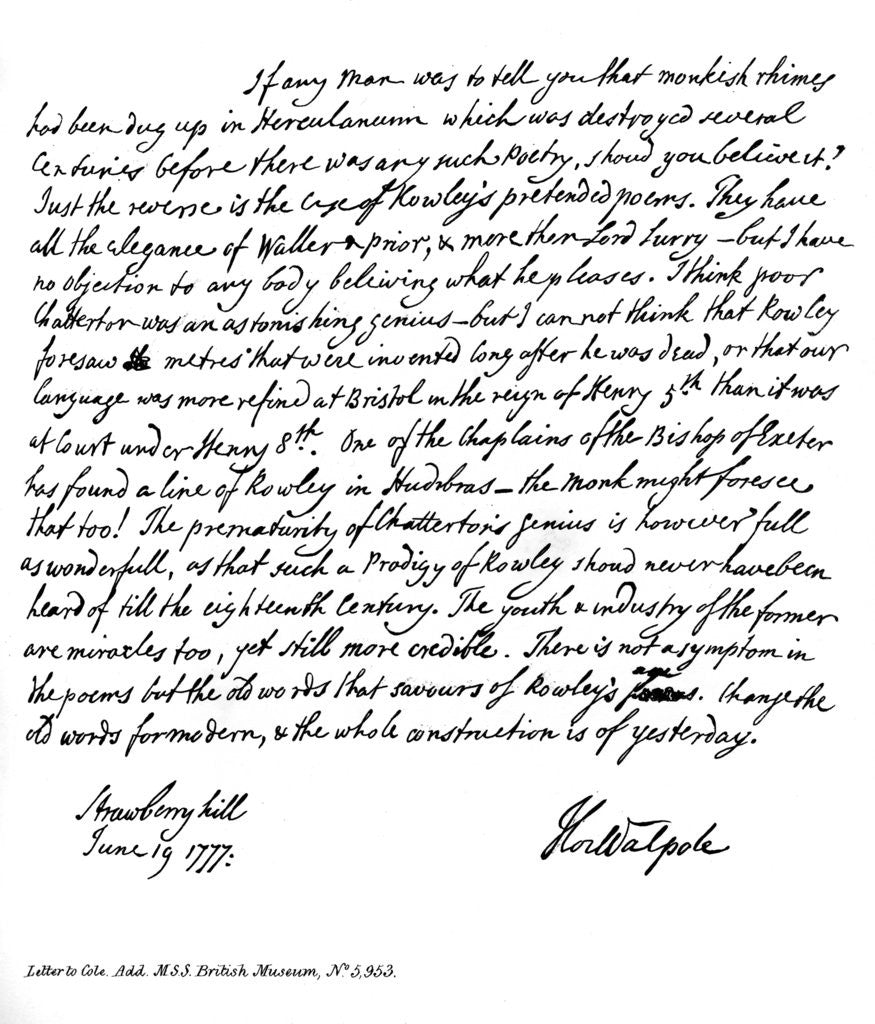 If any Man was to tell you that monkish rhimes
had been dug up in Herculaneum which was destroyed several
Centuries before there was any such Poetry, shoud you believe it?
Just the reverse is the Case of Rowley's pretended poems. They have
all the elegance of Waller & prior, & more than Lord Surry – but I have
no objection to any body beleiving what he pleases. I think poor
Chatterton was an astonishing genius – but I can not think that Rowley
foresaw metres that were invented long after he was dead, or that our
Language was more refined at Bristol in the reign of Henry 5th. than it was
at Court under Henry 8th. One of the Chaplains of the Bishop of Exeter
has found a line of Rowley in Hudibras – the Monk might foresee
that too! The prematurity of Chatterton's genius is however full
as wonderfull, as that such a Prodigy of Rowley shoud never have been
heard of till the eighteenth Century. The youth & industry of the former
are miracles too, yet still more credible. There is not a symptom in
the poems but the old words that savours of Rowley's age. Change the
old words for modern, & the whole construction is of yesterday.
Strawberry hill
June 19 1777:
Hor Walpole
Letter to Cole. Add. M.S.S. British Museum, No. 5,953.